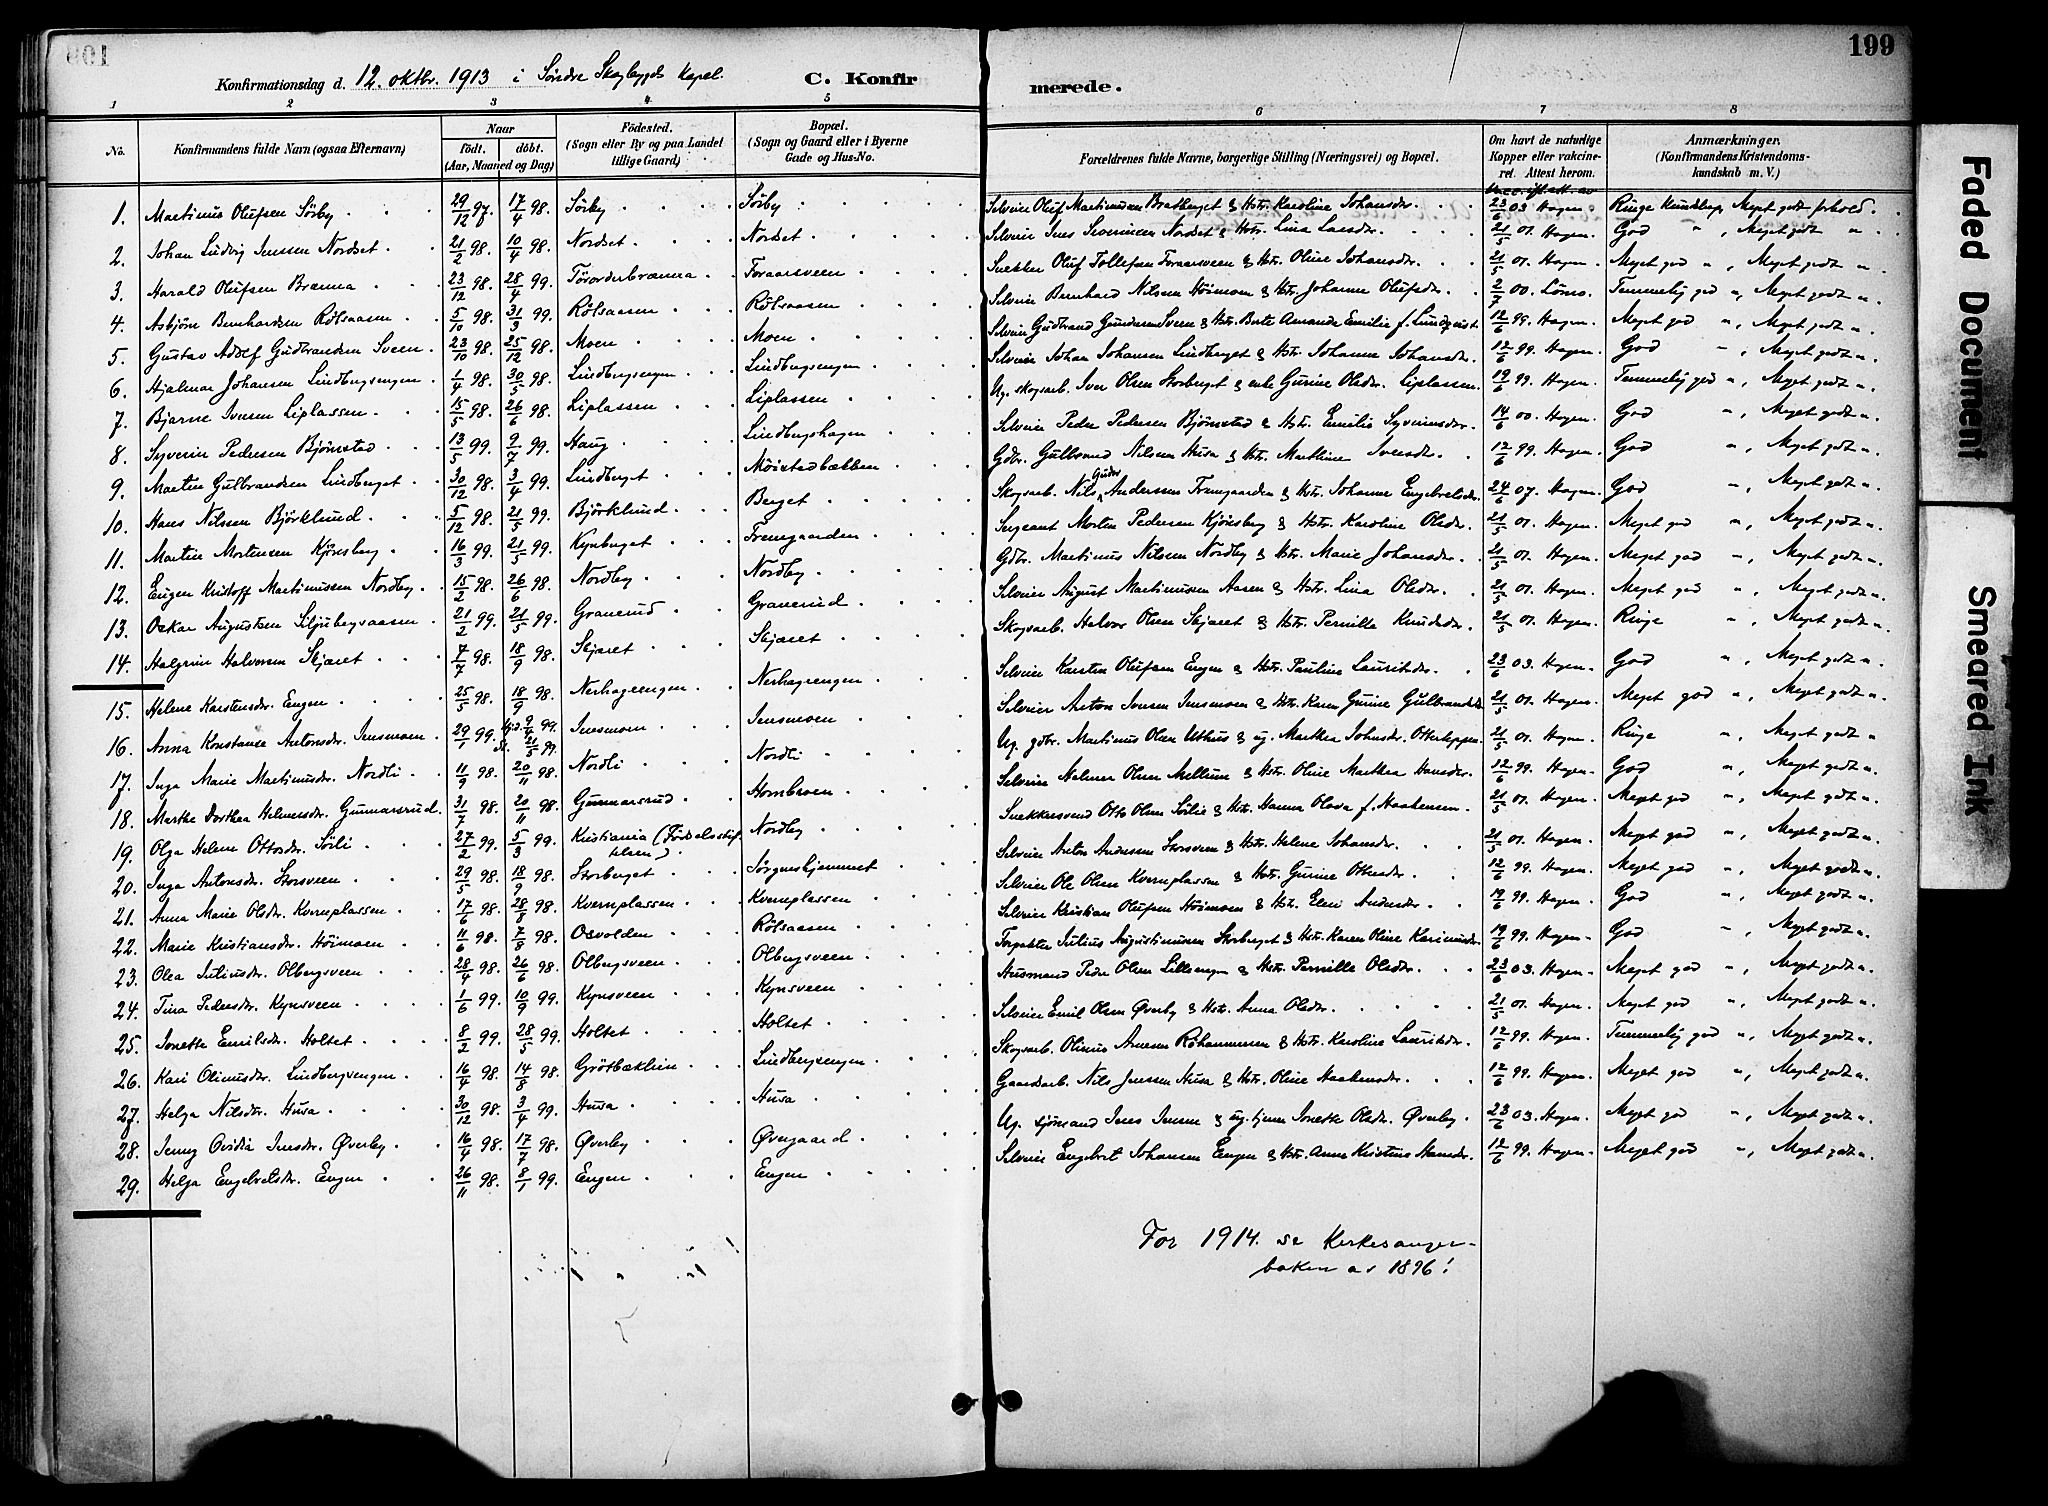 199
Konfirmationsdag d. 12. oktbr. 1913 i Söndre Skogbygds Kapel.
C. Konfirmerede.
1 2 3 4 5 6 7 8
No. Konfirmandens fulde Navn (ogsaa Efternavn) Naar födt. döbt. (Aar, Maaned og Dag) Födested. (Sogn eller By og paa Landet tillige Gaard) Bopæl. (Sogn og Gaard eller i Byerne Gade og Hus-No. Forældrenes fulde Navne, borgerlige Stilling (Næringsvei) og Bopæl. Om havt de naturlige Kopper eller vakcineret. Attest herom. Anmærkninger. (Konfirmandens Kristendomskundskab m. V.)
1. Martinus Olufsen Sörby 29/12 97. 17/4 98. Sörby Sörby Selveier Oluf Martinussen Bratberget & Hstr. Karoline Johansdr. 23/6 03 Hagen Ringe Kundskap, Meget godt forhold.
2. Johan Ludvig Jenssen Nordset 21/2 98. 10/4 98. Nordset Nordset Selveier Jens Severinsen Nordset & Hstr. Lina Larsdr. 21/5 01. Hagen. God " , Meget godt "
3. Harald Olufsen Brænna 23/12 98. 28/4 99. Törorderbrænna Foraarsveen Snekker Oluf Tollefsen Foraarsveen & Hstr. Oline Johansdr. 21/5 01. Hagen. Meget god ", Meget godt ".
4. Asbjörn Bernhardsen Rölsaasen 5/10 98. 31/3 99. Rölsaasen Rölsaasen Selveier Bernhard Nilsen Höimoen & Hstr. Johanne Olufsdr. 2/7 00. Löms. Temmelig god ", Meget godt ".
5. Gustav Adolf Gudbrandsen Sveen 23/10 98. 25/12 98. Moen Moen Selveier Gudbrand Gundersen Sveen & Hstr. Berte Amanda Emilie f. Lundqvist 12/6 99. Hagen. Meget god ", Meget godt ".
6. Hjalmar Johansen Lindbergsengen 1/4 98. 30/5 98. Lindbergsengen Lindbergsengen Selveier Johan Johansen Lindberget & Hstr. Johanne Johansdr. 12/6 99. Hagen. God ", Meget godt ".
7. Bjarne Iversen Liplassen 15/5 98. 26/6 98. Liplassen Liplassen Ug. skogsarb. Iver Olsen Storberget & enke Gurine Olsdr. Liplassen 19/6 99. Hagen. Temmelig god ", Meget godt ".
8. Syverin Pedersen Björnstad 13/5 99. 9/7 99. Haug Lindbergshagen Selveier Peder Pedersen Björnstad & Hstr. Emilie Syverinsdr. 14/6 00. Hagen God ", Meget godt ".
9. Martin Gulbrandsen Lindberget 30/12 98. 3/4 99. Lindberget Möistadbakken Gdbr. Gulbrand Nilsen Husa & Hstr. Marthine Iversdr. 12/6 99. Hagen. God ", Meget godt ".
10. Hans Nilssen Björklund 5/12 98. 21/5 99. Björklund Berget Skogsarb. Nils Anderssen Fremgaarden & Hstr. Johanne Engebretsdr. 24/6 07. Hagen. God ", Meget godt ".
11. Martin Mortensen Kjönsberg 16/3 99. 21/5 99. Kynberget Fremgaarden Sergeant Morten Pedersen Kjönsberg & Hstr. Karoline Olsdr. 21/5 01. Hagen. Meget god ", Meget godt ".
12. Eugen Kristoff Martinussen Nordby 15/2 98. 26/6 98. Nordby Nordby Gdbr. Martinus Nilsen Nordby & Hstr. Marie Johansdr. 21/5 01. Hagen. Meget god ", Meget godt ".
13. Oskar Augustsen Siljubergsaasen 21/2 99. 21/5 99. Granerud Granerud Selveier August Martinussen Aasen & Hstr. Lina Olsdr. 21/5 01. Hagen. Meget god ", Meget godt ".
14. Halgrim Halvorsen Skjæret 7/7 98. 18/9 98. Skjæret Skjæret Skogsarb. Halvor Olsen Skjæret & Hstr. Pernille Knudsdr. 21/5 01. Hagen. Ringe ", Meget godt ".
15. Helene Karstensdr. Engen 25/5 98. 18/9 98. Nerhagengen Nerhagengen Selveier Karsten Olufsen Engen & Hstr. Pauline Lauritsdr. 23/6 03. Hagen. God ", Meget godt ".
16. Anna Konstanse Antonsdr. Jensmoen 29/1 99. 9/4 99. 21/5 99. Jensmoen Jensmoen Selveier Anton Iversen Jensmoen & Hstr. Karen Gurine Gulbrandsdr. 21/5 01. Hagen. Meget god ", Meget godt ".
17. Inga Marie Martinusdr. Nordli 11/9 98. 20/11 98. Nordli Nordli Ug. gdbr. Martinus Olsen Uthus & ug. Marthea Johnsdr. Ottertoppen 21/5 01. Hagen. Ringe ", Meget godt ".
18. Marthe Dorthea Helmersdr. Gunnarsrud 31/7 98. 20/11 98. Gunnarsrud Hornbroen Selveier Helmer Olsen Mellum & Hstr. Oline Marthea Hansdr. 12/6 99. Hagen. God ", Meget godt ".
19. Olga Helene Ottosdr. Sörli 27/2 99. 5/3 99. Kristiania (Födselsstiftelsen) Nordby Snekkersvend Otto Olsen Sörlie & Hstr. Hanna Olava f. Haakensen 21/5 01. Hagen. Meget god ", Meget godt ".
20. Inga Antonsdr. Storsveen 29/5 98. 18/9 98. Storberget Sörgneshjemmet Selveier Anton Andersen Storsveen & Hstr. Helene Johansdr. 21/5 01. Hagen. Meget god ", Meget godt ".
21. Anna Marie Olsdr. Kvernplassen 17/6 98. 28/8 98. Kvernplassen Kvernplassen Selveier Ole Olsen Kvernplassen & Hstr. Gurine Ottersdr. 12/6 99. Hagen. Meget god ", Meget godt ".
22. Marie Kristiansdr. Höimoen 11/6 98. 7/8 98. Osvolden Rölsaasen Selveier Kristian Olufsen Höimoen & Hstr. Eleni Andersdr. 19/6 99. Hagen. God ", Meget godt ".
23. Olea Juliusdr. Olbergsveen 28/4 98. 26/6 98. Olbergsveen Olbergsveen Forpakter Julius Augustinussen Storberget & Hstr. Karen Oline Karinusdr. 19/6 99. Hagen. God ", Meget godt ".
24. Tina Pedersdr. Kynsveen 1/6 99. 10/9 99. Kynsveen Kynsveen Husmand Peder Olsen Lillengen & Hstr. Pernille Olsdr. 23/6 03. Hagen. Meget god ", Meget godt ".
25. Jonette Emilsdr. Holtet 8/2 99. 28/5 99. Holtet Holtet Selveier Emil Olsen Øverby & Hstr. Anna Olsdr. 21/5 01. Hagen. Meget god ", Meget godt ".
26. Kari Olinusdr. Lindbergsengen 16/4 98. 14/8 98. Grötbæklien Lindbergsengen Skogsarb. Olinus Arnesen & Hstr. Karoline Lauritsdr. 12/6 99. Hagen. Temmelig god ", Meget godt ".
27. Helga Nilsdr. Husa 30/12 98. 3/4 99. Husa Husa Gaardarb. Nils Jenssen Husa & Hstr. Oline Haakensdr. 12/6 99. Hagen. Meget god ", Meget godt ".
28. Jenny Ovidia Jensdr. Øverby 16/4 98. 17/7 98. Øverby Øvergaard Ug. sjömand Jens Jensen & ug. tjener Jonette Olsdr. Øverby 23/6 03. Hagen. Meget god ", Meget godt ".
29. Helga Engebretsdr. Engen 26/11 98. 8/1 99. Engen Engen Selveier Engebret Johansen Engen & Hstr. Anne Kristine Hansdr. 12/6 99. Hagen. Meget god ", Meget godt ".
For 1914. se Kirkesanger-
boken av 1896!
Faded Document
Smeared Ink